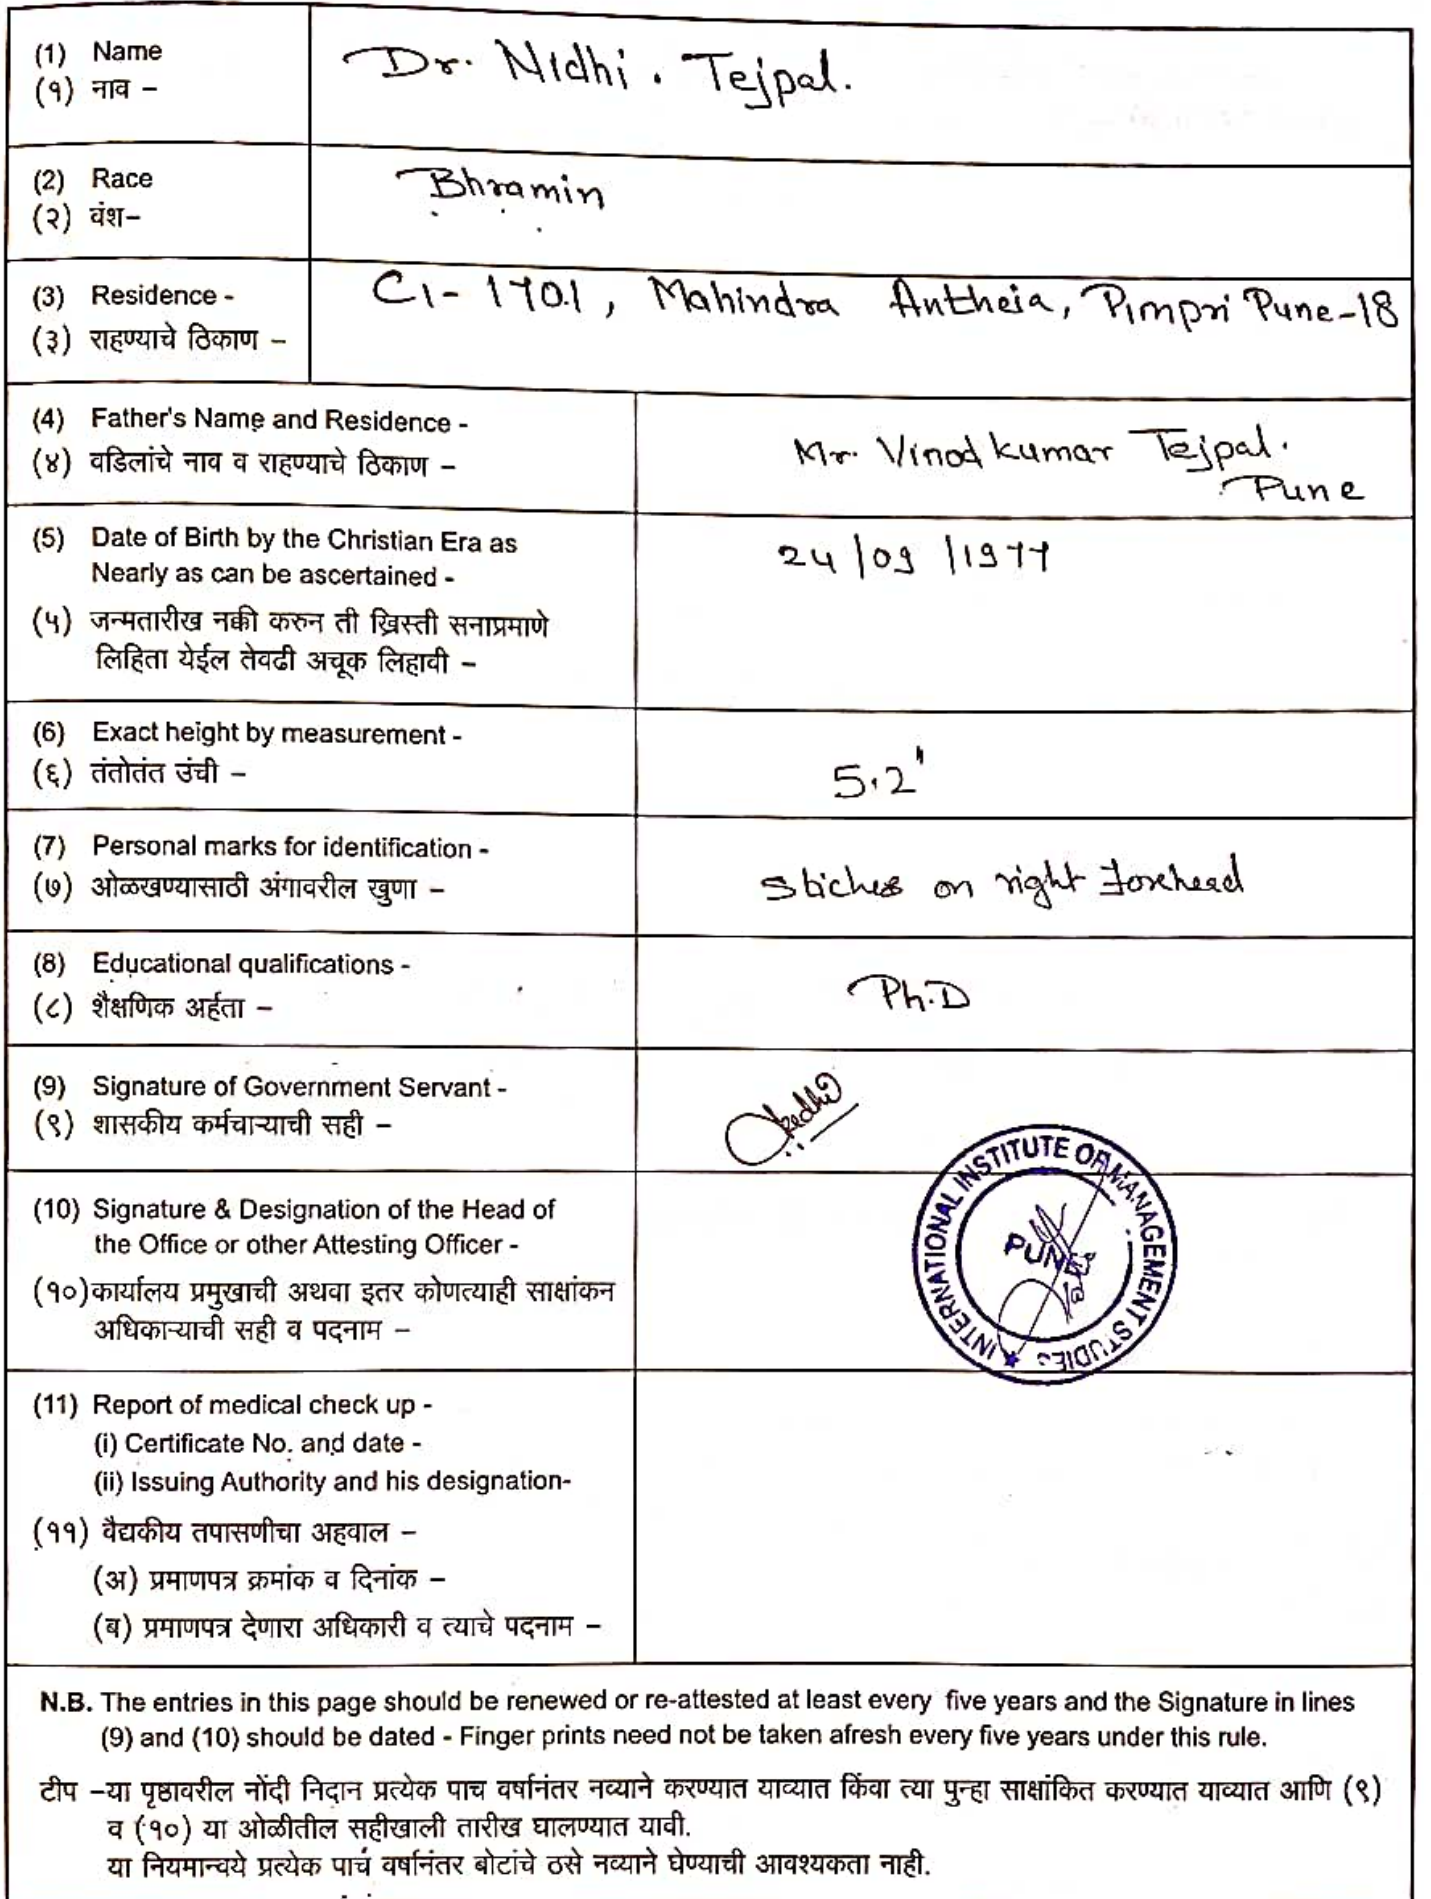 (1) Name
(१) नाव –
Dr. Nidhi. Tejpal.
(2) Race
(२) वंश–
Bhramin
(3) Residence -
(३) राहण्याचे ठिकाण –
C1- 1701, Mahindra Antheia, Pimpri Pune-18
(4) Father's Name and Residence -
(४) वडिलांचे नाव व राहण्याचे ठिकाण –
Mr. Vinod kumar Tejpal.
Pune
(5) Date of Birth by the Christian Era as
Nearly as can be ascertained -
(५) जन्मतारीख नक्की करुन ती ख्रिस्ती सनाप्रमाणे
लिहिता येईल तेवढी अचूक लिहावी –
24/09/1977
(6) Exact height by measurement -
(६) तंतोतंत उंची –
5.2"
(7) Personal marks for identification -
(७) ओळखण्यासाठी अंगावरील खुणा –
Stiches on right forehead
(8) Educational qualifications -
(८) शैक्षणिक अर्हता –
Ph.D
(9) Signature of Government Servant -
(९) शासकीय कर्मचाऱ्याची सही –
(10) Signature & Designation of the Head of
the Office or other Attesting Officer -
(१०) कार्यालय प्रमुखाची अथवा इतर कोणत्याही साक्षांकन
अधिकाऱ्याची सही व पदनाम –
INTERNATIONAL INSTITUTE OF MANAGEMENT STUDIES
PUNE
(11) Report of medical check up -
(i) Certificate No. and date -
(ii) Issuing Authority and his designation-
(११) वैद्यकीय तपासणीचा अहवाल –
(अ) प्रमाणपत्र क्रमांक व दिनांक –
(ब) प्रमाणपत्र देणारा अधिकारी व त्याचे पदनाम –
N.B. The entries in this page should be renewed or re-attested at least every five years and the Signature in lines
(9) and (10) should be dated - Finger prints need not be taken afresh every five years under this rule.
टीप –या पृष्ठावरील नोंदी निदान प्रत्येक पाच वर्षानंतर नव्याने करण्यात याव्यात किंवा त्या पुन्हा साक्षांकित करण्यात याव्यात आणि (९)
व (१०) या ओळीतील सहीखाली तारीख घालण्यात यावी.
या नियमान्वये प्रत्येक पाच वर्षानंतर बोटांचे ठसे नव्याने घेण्याची आवश्यकता नाही.